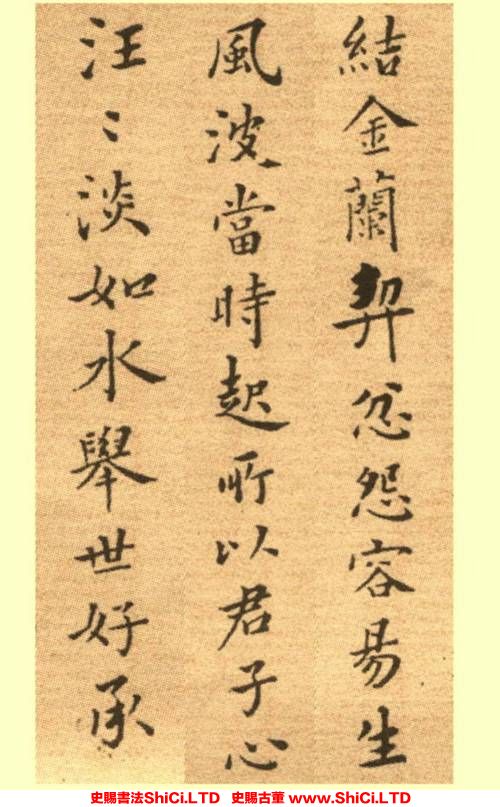 結金蘭契忿怨容易生
風波當時起所以君子心
汪〻淡如水舉世好承
史賜書法ShiCi.LTD 史賜古董 www.ShiCi.LTD